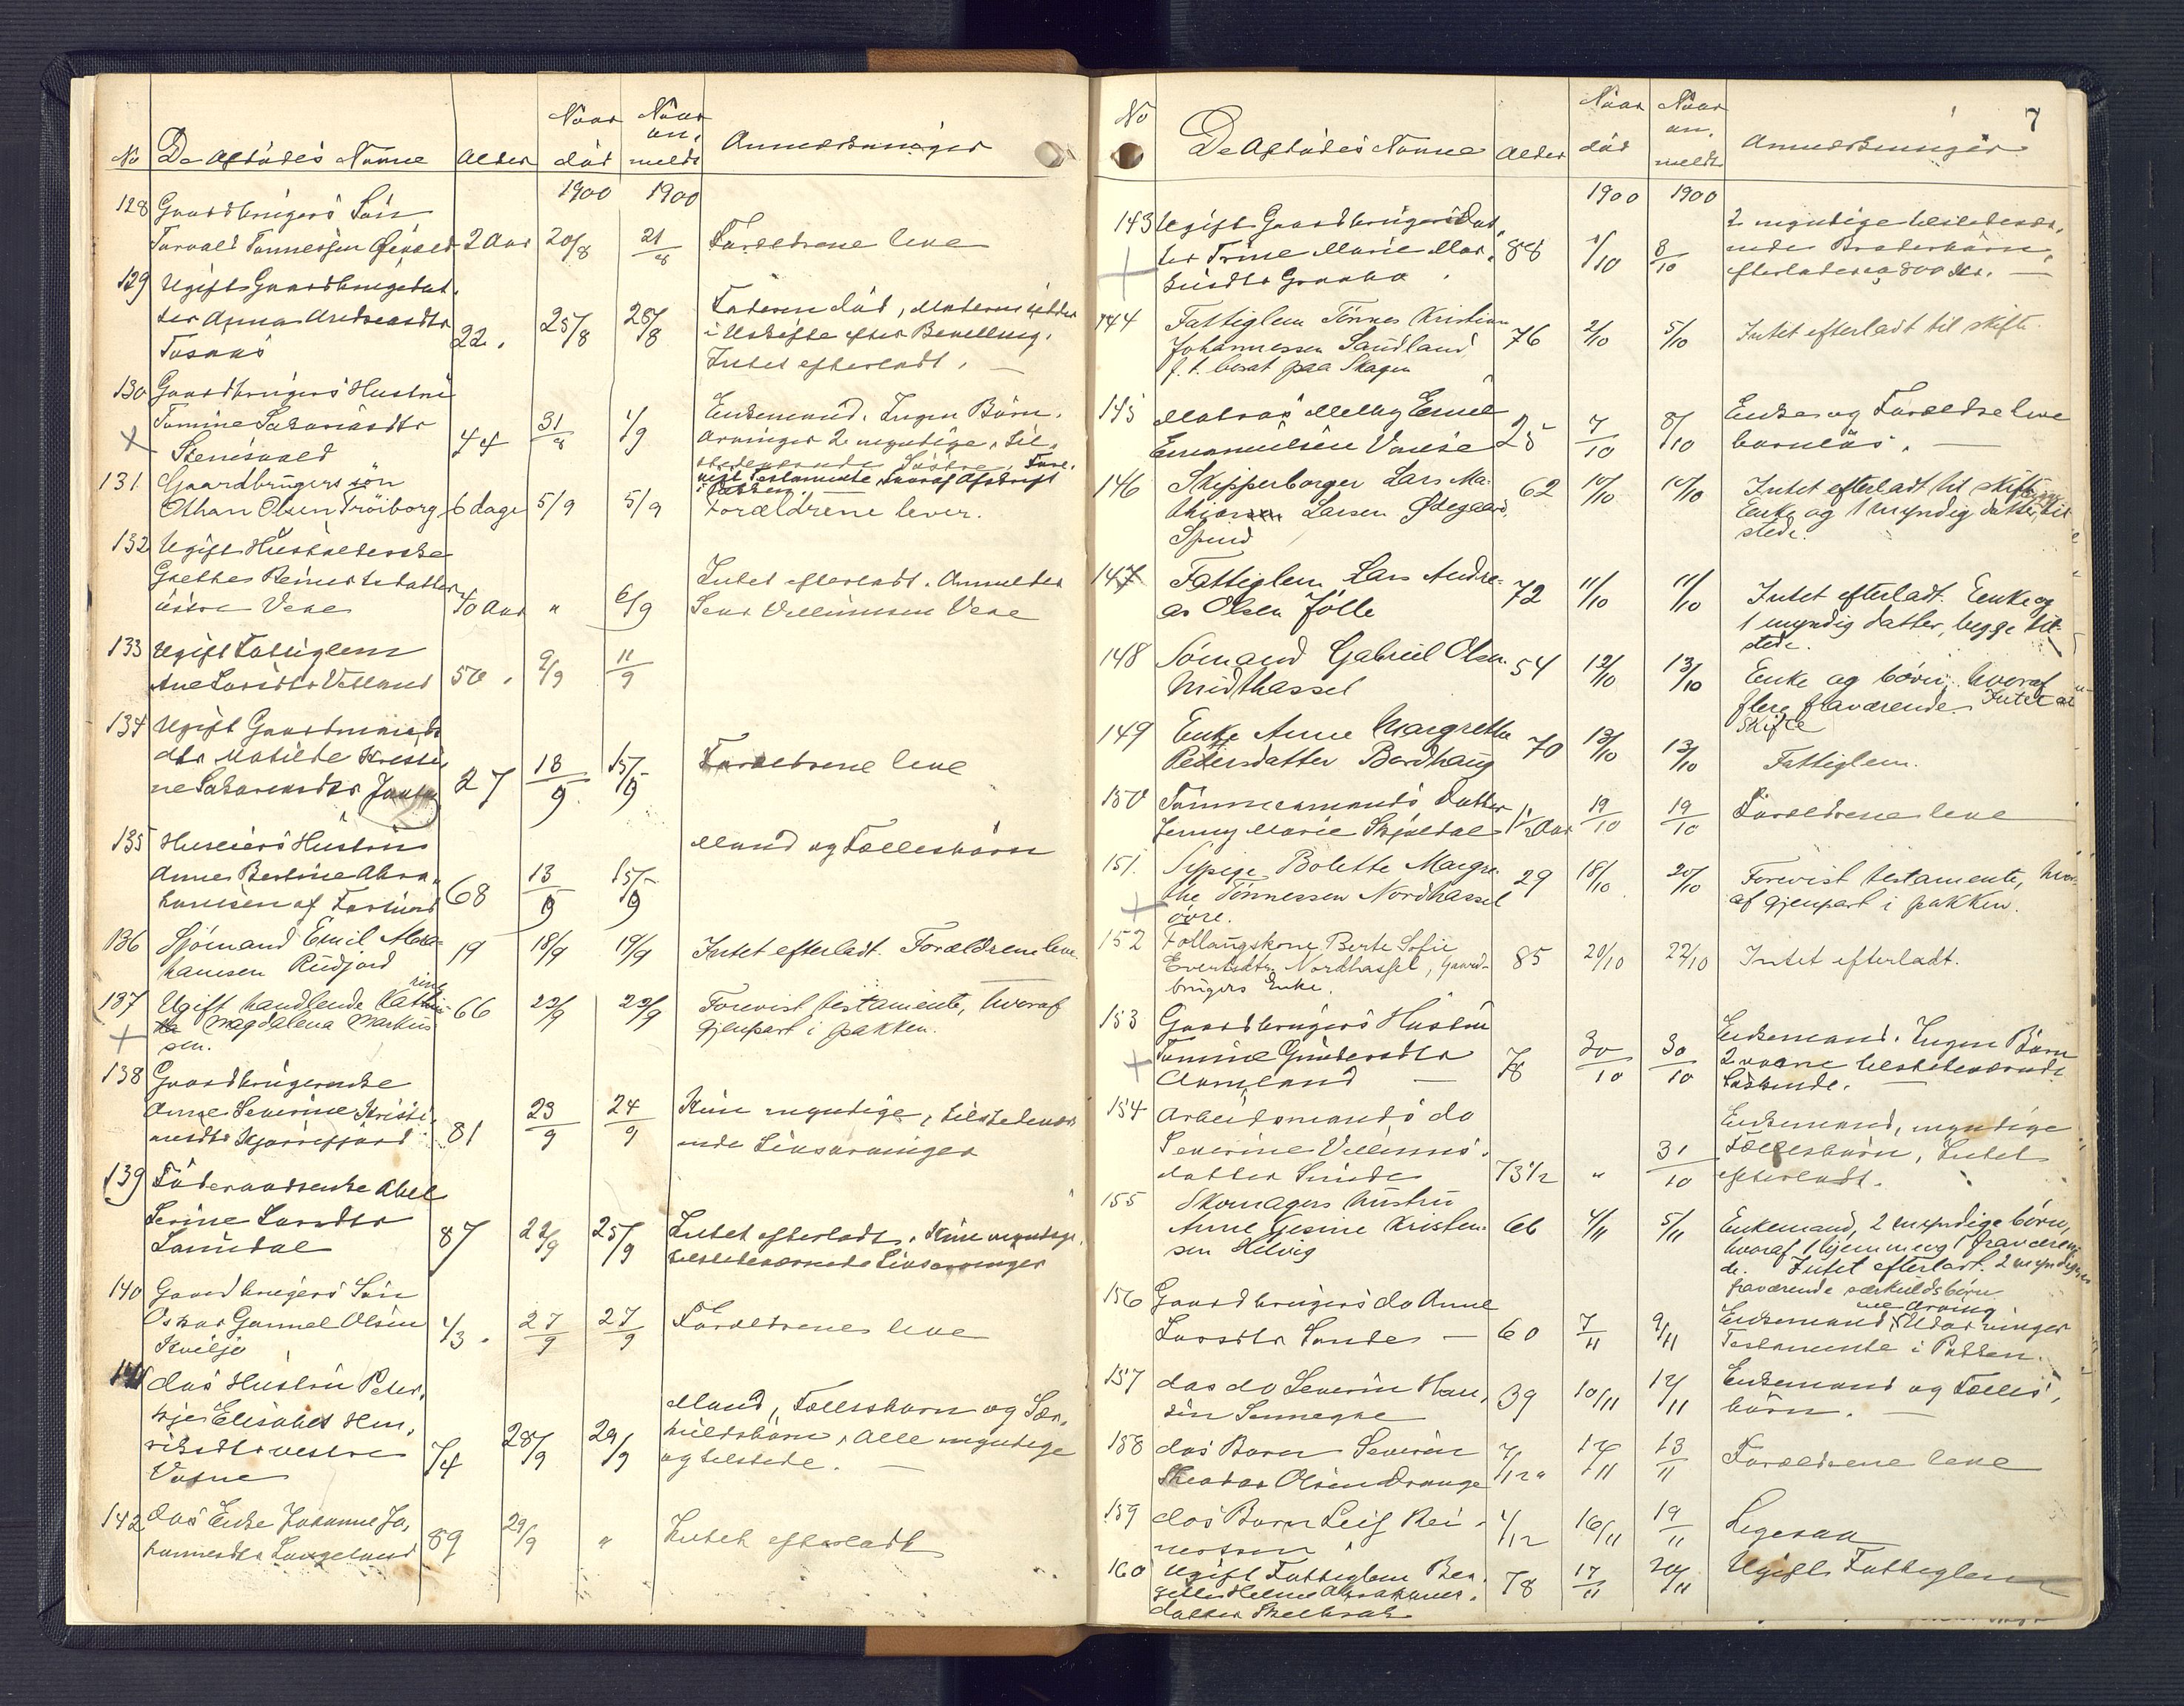 No De Afdødes Navne Alder Naar død Naar an- meldt Anmerkninger
1900 1900
128 Gaardbrugers Søn
Torvald Tønnessen Ø 2 Aar 20/8 21/8 Forældrene leve
129 Ugift Gaardbrugerdat-
ter Anna Andreasdtr 22 " 25/8 28/8 Faderen død, Moderen sidder
i Uskifte efter Bevilling.
Intet efterladt.
130 Gaardbrugers Hustru
Tomine Sakariasdtr 44 31/8 1/9 Enkemand. Ingen Børn.
Arvinger 2 myndige, til-
stedeværende Søstre. Fore-
vist Testamente hvoraf Afskrift
i Pakken.
131. Gaardbrugers søn
Othan Olsen Trøiborg 6 dage 5/9 5/9 Forældrene lever.
132 Ugift Husholderske
Grethe Reinertsdatter
Vere 40 Aar " 6/9 Intet efterladt. Anmelder
Vere
133 Ugift Fattiglem
Ane Larsdtr 50 " 9/9 11/9
134 Ugift Gaardmands
dtr Matilde Kristi-
ne 27 13/9 15/9 Forældrene leve
135 Huseiers Hustru
Anne Bertine Abra-
hamsen af Farsund 68 13/9 15/9 Mand og Fællesbørn
136 Sjømand Emil Abra-
hamsen Rudjord 19 18/9 19/9 Intet efterladt. Forældrene leve.
137 Ugift handlende Kath-
rine Magdalena Markus
sen. 66 22/9 22/9 Forevist testamente, hvoraf
gjenpart i pakken.
138 Gaardbrugerenke
Anne Severine Kristi-
ansdtr 81 23/9 24/9 Kun myndige, tilstedevær-
ende Livsarvinger
139 Føderaadsenke Abel
Serine Larsdtr
87 22/9 25/9 Intet efterladt. Kun myndige,
tilstedeværende Livsarvinger
140 Gaardbrugers Søn
Oskar Gunnel Olsen
Kviljo 1/3 " 27/9 27/9 Forældrene leve
141 dos Hustru Peter-
Elisabet Hen-
riksdtr vestre
74 28/9 29/9 Mand, Fællesbarn og Sær-
kuldsbørn, alle myndige
og tilstede.
142 dos Enke Johanne Jo-
hannesdtr Langeland 89 29/9 " Intet efterladt
7
No De Afdødes Navne Alder Naar død Naar an- meldt Anmerkninger
1900 1900
143 Ugift Gaardbrugersdat-
ter Trine Marie Mar-
88 1/10 8/10 2 myndige tilstedevær-
ende Broderbørn,
efterlader ca 800 Kr.
144 Fattiglem Tønnes Kristian
Johannessen Sandland
f. t. bosat paa Skagen 76 2/10 5/10 Intet efterladt til skifte.
145 Matros Melby Emil
Emanuelsen Vanse 25 7/10 8/10 Enke og Forældre leve
barnløs.
146 Skipperborger Lars Ma-
thias Larsen Ødegaard,
Spind 62 10/10 10/10 Intet efterladt til skifte.
Enke og 1 myndig datter til
stede.
147 Fattiglem Lars Andre-
as Olsen Jølle 72 11/10 11/10 Intet efterladt. Enke og
1 myndig datter, begge til-
stede.
148 Sømand Gabriel Olsen
Midthassel 54 12/10 13/10 Enke og børn, hvoraf
flere fraværende. Intet at
skifte
149 Enke Anne Margrethe
Pedersdatter Bordhaug 70 13/10 13/10 Fattiglem.
150 Tømmermands Datter
Jenny Marie 1 1/2 Aar 19/10 19/10 Forældrene leve
151. Sypige Bolette Margre-
the Tønnessen Nordhassel
øvre. 29 18/10 20/10 Forevist testamente, hvor-
af gjenpart i pakken.
152 Follaugskone Berte Sofie
Evertsdtr. Nordhassel, Gaard-
brugers Enke. 85 20/10 22/10 Intet efterladt.
153 Gaardbrugers Hustru
Tomine Gundersdtr
78 30/10 30/10 Enkemand. Ingen Børn
2 voxne tilstedeværende
Søskende.
154 Arbeidsmands do
Severine Villums-
datter Sunde 73 1/2 " 31/10 Enkemand, myndige
Fællesbørn, Intet
efterladt.
155 Skomagers hustru
Anne Gesine Kristen-
sen Helvig 66 4/11 5/11 Enkemand, 2 myndige børn,
hvoraf 1 hjemme og 1 fraværen-
de. Intet efterladt. 2 myndige
fraværende særkuldsbørn
156 Gaardbrugers do Anne
Larsdtr Sande 60 7/11 9/11 Enkemand
Testamente i Pakken.
157 dos do Severin Han-
sen 39 10/11 12/11 Enkemand og Fælles-
børn.
158 dos Barn Severin
Theodor Olsen Drange 7/12 " 12/11 13/11 Forældrene leve
159 dos Barn Leif Rei-
nertsen 1/12 16/11 19/11 Ligesaa
160 Ugift Fattiglem Ber-
Helene Abrahams-
datter 78 17/11 20/11 Ugift Fattiglem